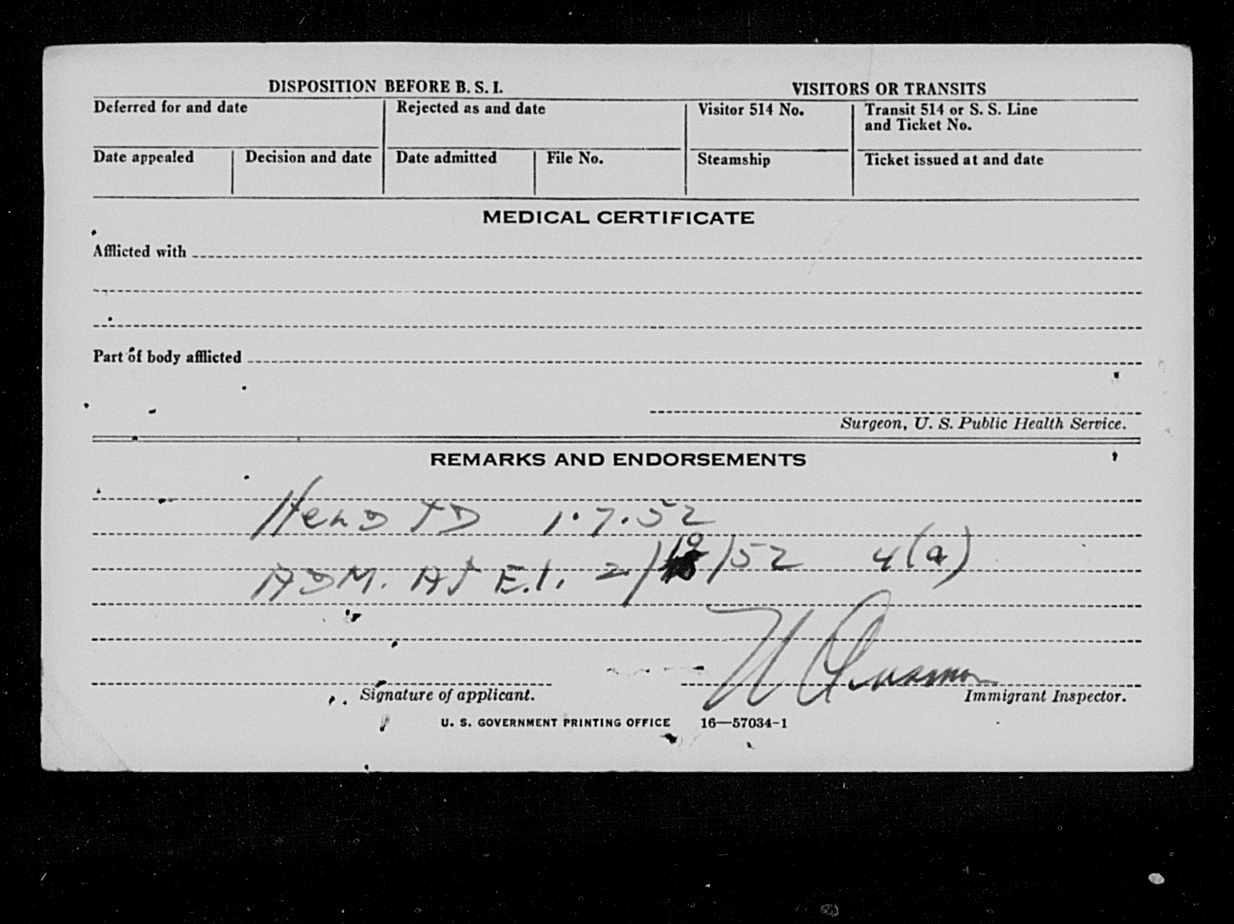 DISPOSITION BEFORE B. S. I.
VISITORS OR TRANSITS
Deferred for and date
Rejected as and date
Visitor 514 No.
Transit 514 or S. S. Line
and Ticket No.
Date appealed
Decision and date
Date admitted
File No.
Steamship
Ticket issued at and date
MEDICAL CERTIFICATE
Afflicted with
Part of body afflicted
Surgeon, U. S. Public Health Service.
REMARKS AND ENDORSEMENTS
HELD TD 1.7.52
ADM. AT E.I. 2/ /52 4(a)
Signature of applicant.
Immigrant Inspector.
U. S. GOVERNMENT PRINTING OFFICE 16—57034-1